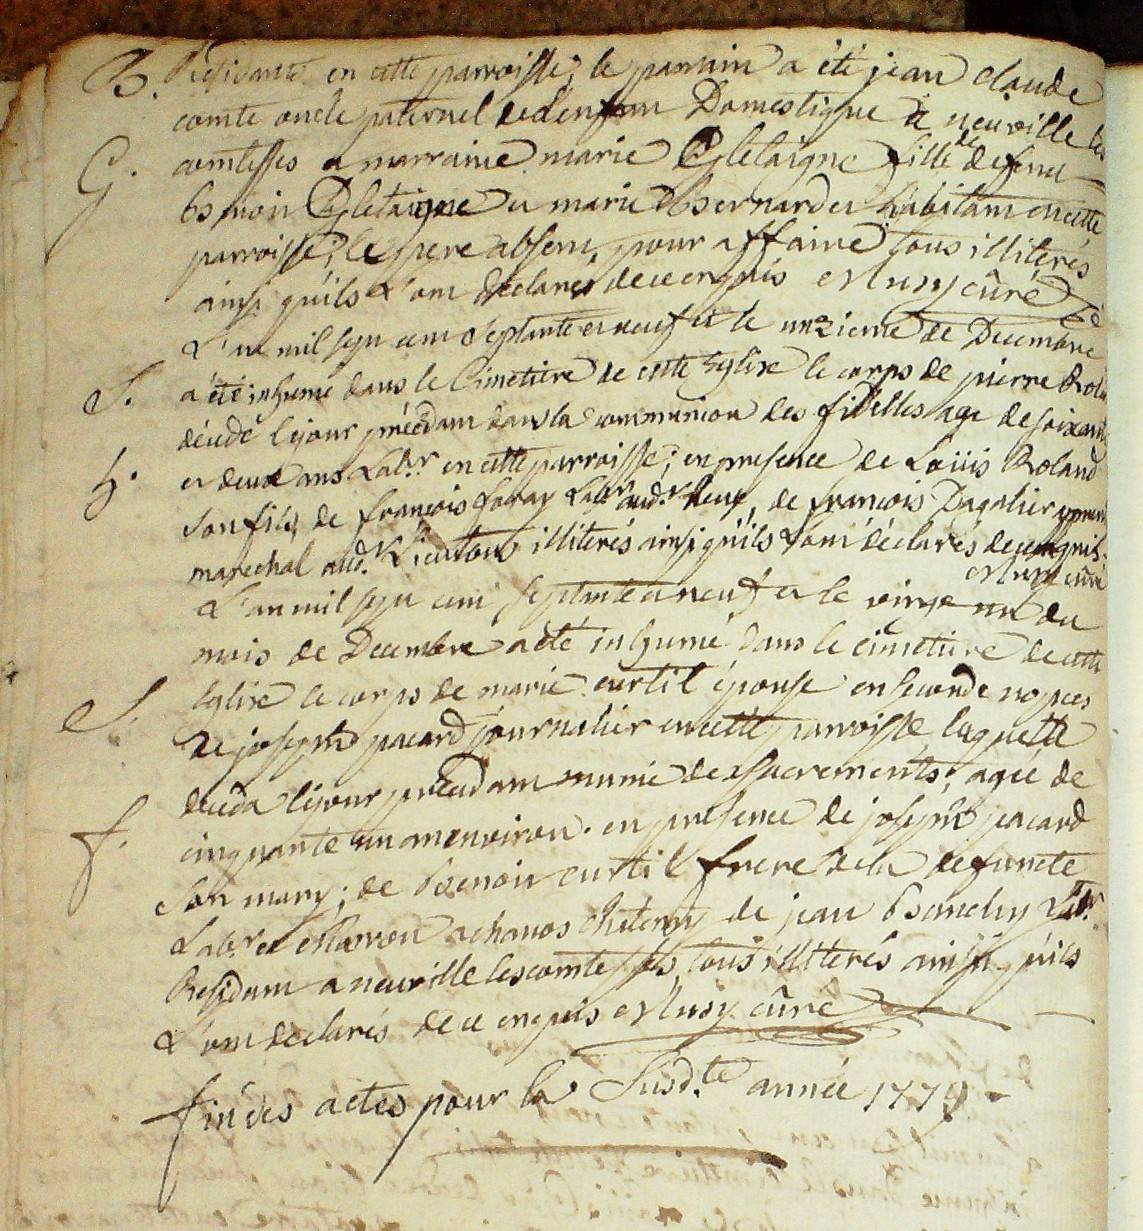 B. Residante en cette parroisse; le parrain a été jean claude
comte oncle paternel de l'enfan Domestique à neuville les
G. comtesses a marraine marie Gletaigne fille de feu
Benoit Gletaigne et marie Bernard et habitant en cette
parroisse; le pere absent, pour affaire tous illiterés
ainsi quils l'ont declarés de ce enquis curé
L'an mil sept cent septante et neuf et le unzieme de Decembre
S. a été inhumé dans le Cimetiere de cette Eglise le corps de pierre Roland
décedé le jour précédant dans la communion des fidelles age de soixante
h. et deux ans Lab.r en cette parroisse; en presence de Loüis Roland
son fils, de françois Lab.r aud.t lieux, de francois Dagalier
marechal aud.t Lieu tous illiterés ainsi quils l'ont déclarés de ce enquis
curé
L'an mil sept cent septante et neuf et le vingt un du
mois de Decembre a été inhumé dans le cimetiere de cette
S. Eglise le corps de marie curtil épouse en seconde nopces
de joseph pacard journalier en cette parroisse, laquelle
deceda le jour précédant munie des sacrements; agée de
f. cinquante un an environ. en presence de joseph pacard
son mary; de Benoit curtil frere de la défuncte
Lab.r et a chanos de jean Lab.r
Residant a neuville les comtesses, tous illiterés ainsi quils
L'ont déclarés de ce enquis curé
fin des actes pour la Susd.te année 1779